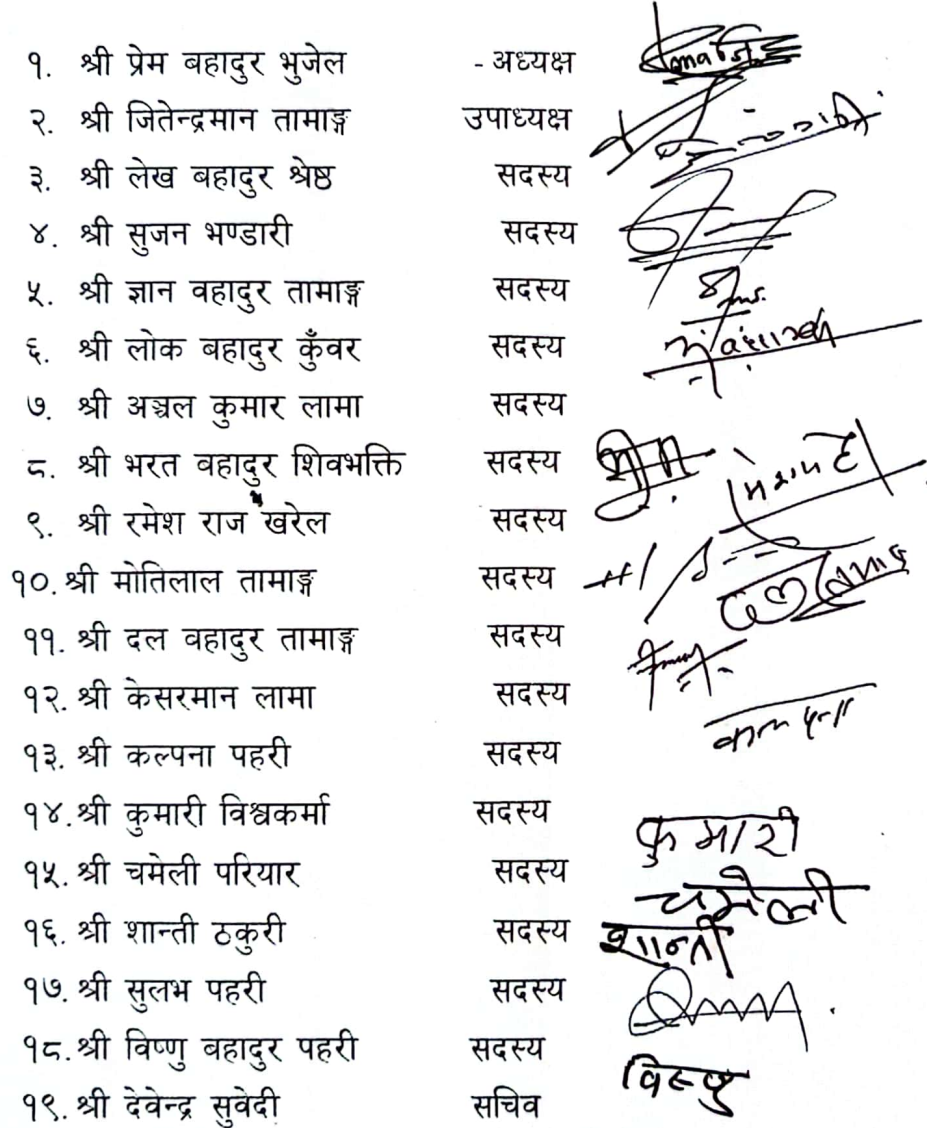 १. श्री प्रेम बहादुर भुजेल - अध्यक्ष
२. श्री जितेन्द्रमान तामाङ्ग उपाध्यक्ष
३. श्री लेख बहादुर श्रेष्ठ सदस्य
४. श्री सुजन भण्डारी सदस्य
५. श्री ज्ञान वहादुर तामाङ्ग सदस्य
६. श्री लोक बहादुर कुँवर सदस्य
७. श्री अञ्चल कुमार लामा सदस्य
८. श्री भरत वहादुर शिवभक्ति सदस्य
९. श्री रमेश राज खरेल सदस्य
१०. श्री मोतिलाल तामाङ्ग सदस्य
११. श्री दल वहादुर तामाङ्ग सदस्य
१२. श्री केसरमान लामा सदस्य
१३. श्री कल्पना पहरी सदस्य कल्पना
१४. श्री कुमारी विश्वकर्मा सदस्य कुमारी
१५. श्री चमेली परियार सदस्य चमेली
१६. श्री शान्ती ठकुरी सदस्य शान्ती
१७. श्री सुलभ पहरी सदस्य
१८. श्री विष्णु बहादुर पहरी सदस्य विष्णु
१९. श्री देवेन्द्र सुवेदी सचिव